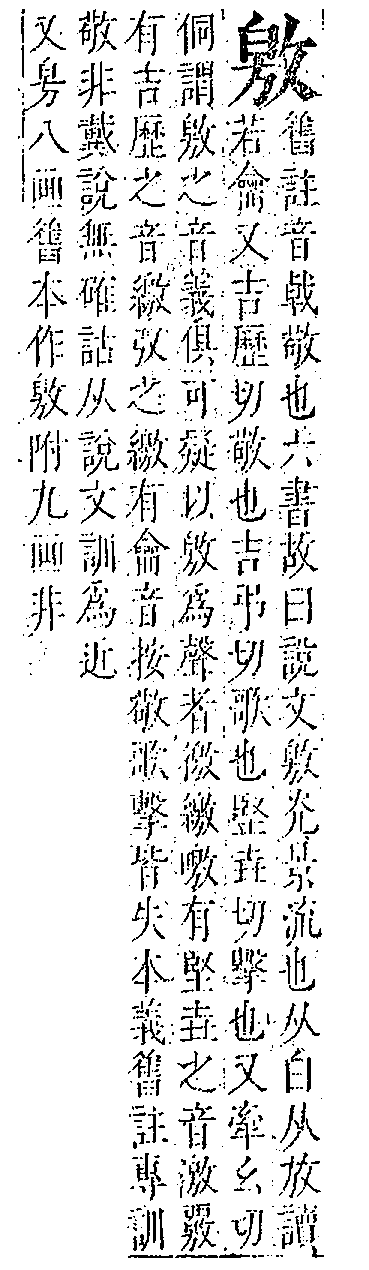 敫舊註音戟敬也六書故曰說文敫光景流也从白从放讀
若龠又吉歷切敬也吉弔切歌也堅垚切擊也又牽幺切
侗謂敫之音義俱可疑以敫爲聲者徼繳噭有堅垚之音激覈
有吉歷之音繳之繳有龠音按敬歌擊皆失本義舊註專訓
敬非戴說無確詁从說文訓爲近
又㫄八画舊本作敫附九画非